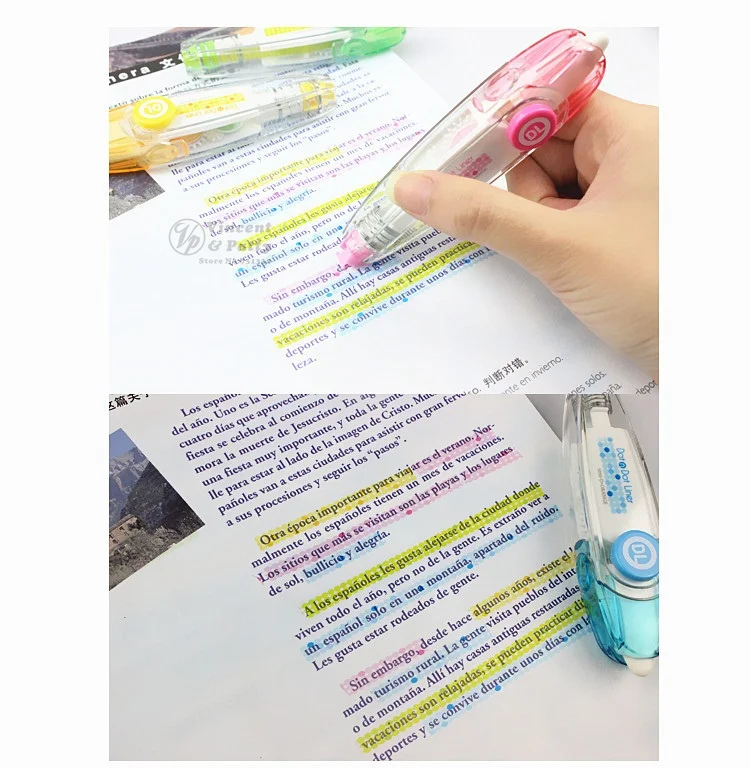 nera 文化
exto sobre la forma de
lle para estar al
pañoles van a estas ciudades para asistir con gran fervor
a sus procesiones y seguir los "pasos".
Otra época importante para viajar es el verano. Nor-
malmente los españoles tienen un mes de vacaciones.
Los sitios que más se visitan son las playas y los lugares
de sol, bullicio y alegría.
españoles les gusta alejarse
viven todo el año, pero no de
un español solo en una
Les gusta estar rodeados
Sin embargo, de
mado turismo rural. La gente visita pueb
o de montaña. Allí hay casas antiguas restauradas
vacaciones son relajadas, se pueden practicar
deportes y se convive durante unos días con
leza.
Vincent
& Paul
Store
DL
DL
判断对错。
nte en invierno.
nes solos.
aña.
depor
这篇关于
Los españo
del año. Uno es la Se
cuatro días que aprovecha
fiesta se celebra al comienzo de
mora la muerte de Jesucristo. En alg
una fiesta muy importante, y toda la gente
lle para estar al lado de la imagen de Cristo. Much
pañoles van a estas ciudades para asistir con gran ferv
a sus procesiones y seguir los "pasos".
Otra época importante para viajar es el verano. Nor-
malmente los españoles tienen un mes de vacaciones.
Los sitios que más se visitan son las playas y los lugares
de sol, bullicio y alegría.
A los españoles les gusta alejarse de la ciudad donde
viven todo el año, pero no de la gente. Es extraño ver a
un español solo en una montaña, apartado del ruido.
Les gusta estar rodeados de gente.
Sin embargo, desde hace algunos años, existe el l
mado turismo rural. La gente visita pueblos del int
o de montaña. Allí hay casas antiguas restauradas
vacaciones son relajadas, se pueden practicar di
deportes y se convive durante unos días con l
Dot e Dot Liner
DL